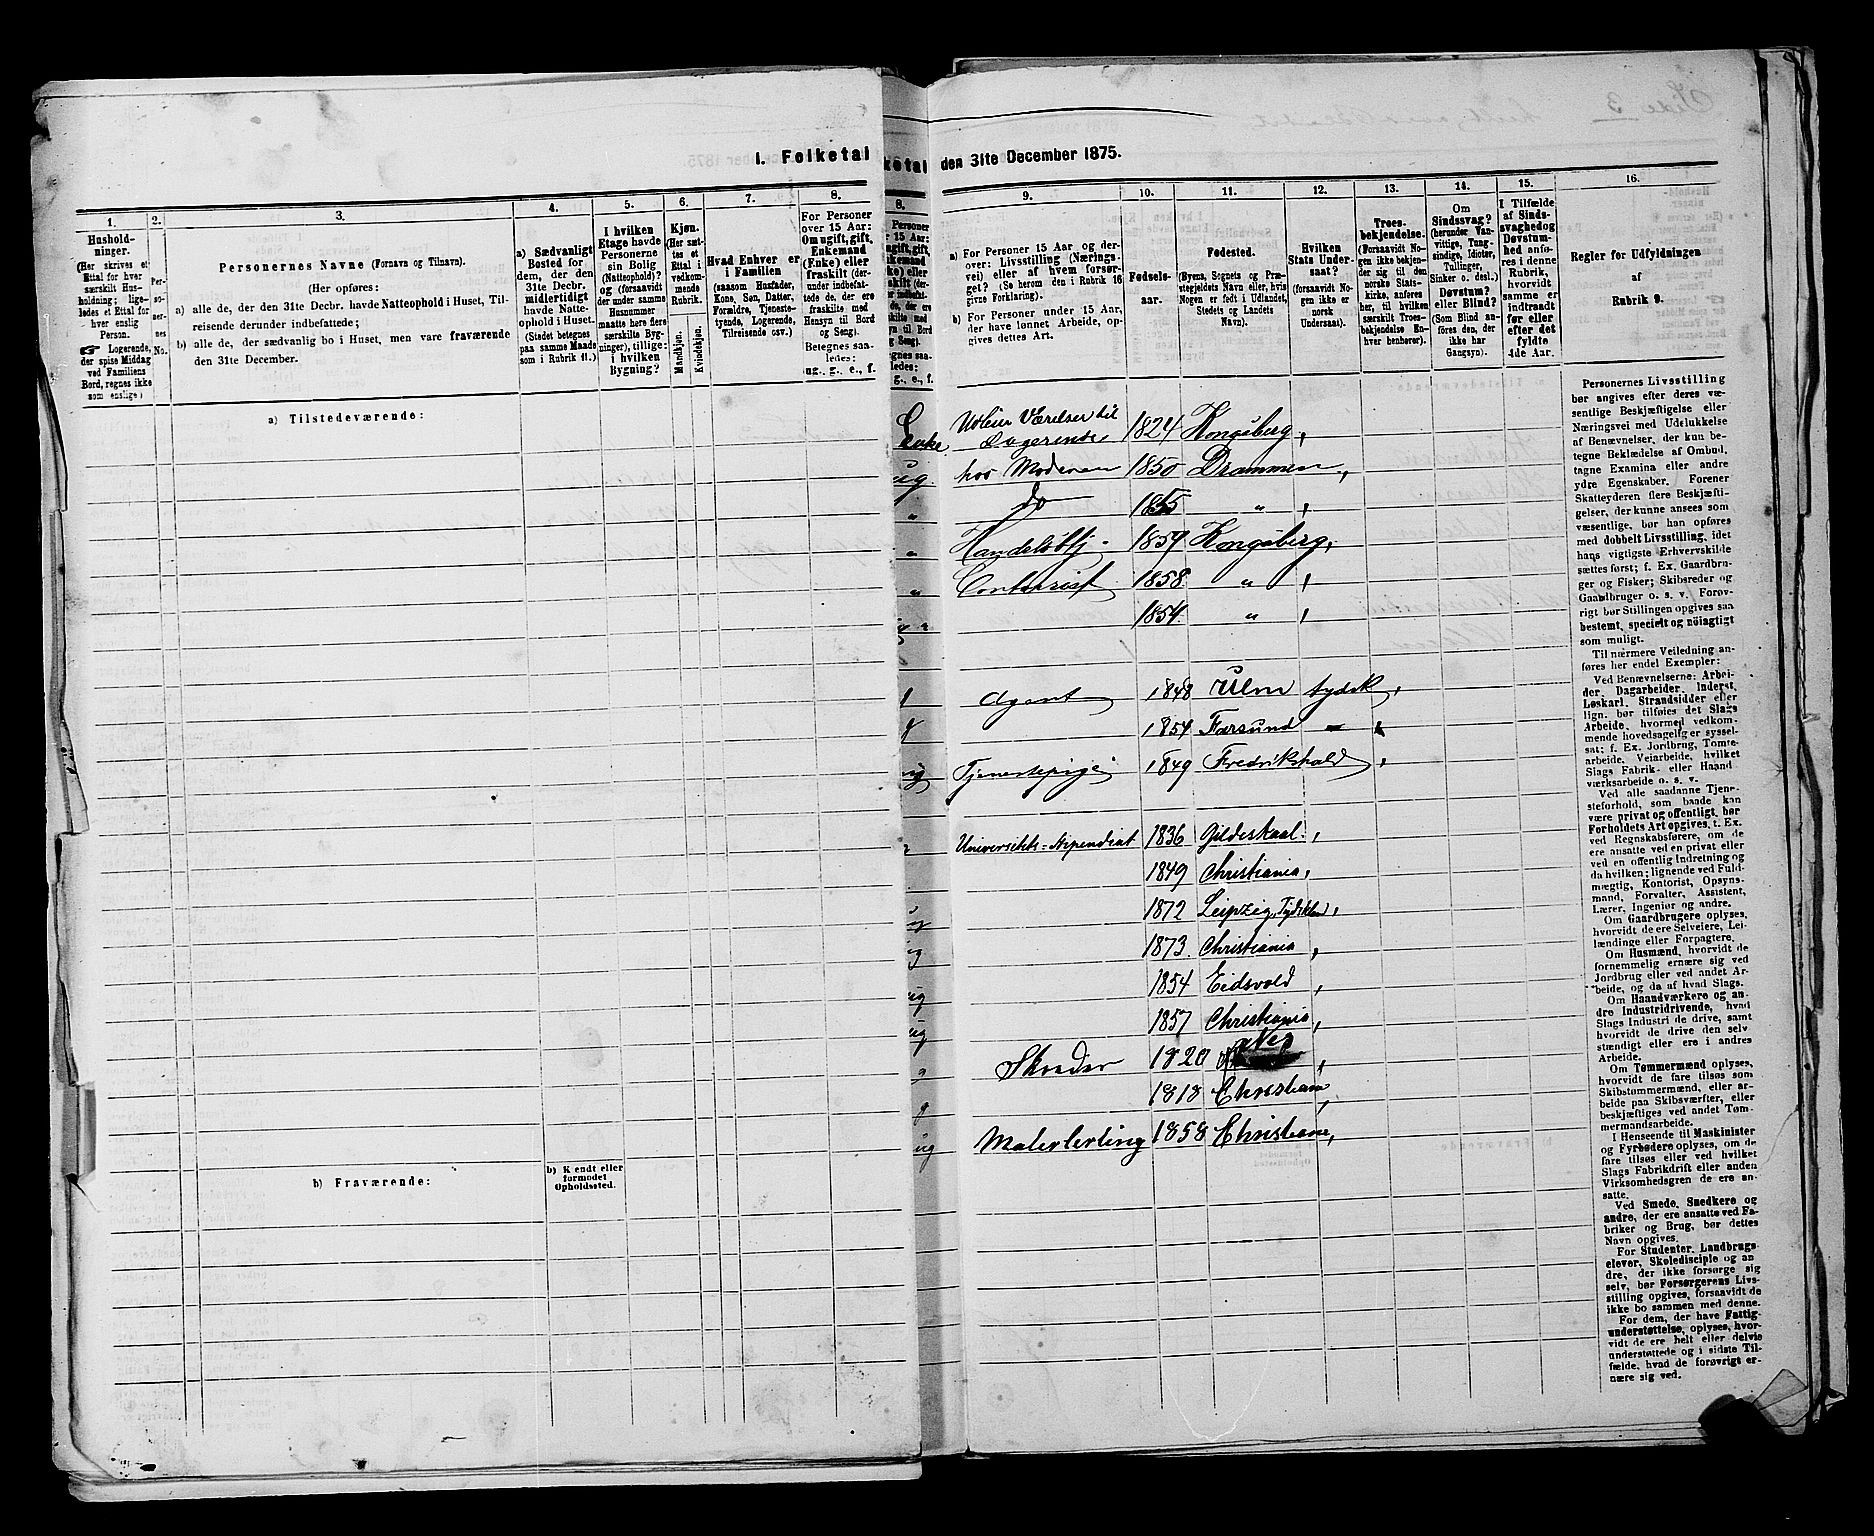 1. Folketal
ketal den 31te December 1875.
1.
2.
3.
4.
5.
6.
7.
8.
8.
9.
10.
11.
12.
13.
14.
15.
16.
Hushold-
ninger.
(Her skrives et
Ettal for hver
særskilt Hus-
holdning; lige-
ledes et Ettal for
hver enslig
Person.
☞ Logerende,
der spise Middag
ved Familiens
Bord, regnes ikke
som enslige.)
Per-
so-
nes
No.
Personernes Navne (Fornavn og Tilnavn).
(Her opføres:
a) alle de, der den 31te Decbr. havde Natteophold i Huset, Til-
reisende derunder indbefattede;
b) alle de, der sædvanlig bo i Huset, men vare fraværende
den 31te December.
a) Sædvanligt
Bosted for
dem, der den
31te Decbr.
midlertidigt
havde Natte-
ophold i Huset.
(Stedet betegnes
paa samme Maade
som i Rubrik 11.)
I hvilken
Etage havde
Personerne
sin Bolig
(Natteophold)?
og (forsaavidt
der under samme
Husnummer
maatte høre flere
særskilte Byg-
ninger), tillige:
i hvilken
Bygning?
Kjøn.
(Her sæt-
tes et
Ettal i
vedkom-
mende
Rubrik.
Mandkjøn.
Kvindekjøn.
Hvad Enhver er
i Familien
(saasom Husfader,
Kone, Søn, Datter,
Forældre, Tjeneste-
tyende, Logerende,
Tilreisende osv.)
For Personer
over 15 Aar:
Om ugift, gift,
Enkemand
(Enke) eller
fraskilt (der-
under indbefat-
tede de, der ere
fraskilte med
Hensyn til Bord
og Seng).
Betegnes saa-
ledes:
ug., g., e., f.
a) For Personer 15 Aar og der-
over: Livsstilling (Nærings-
vei) eller af hvem forsør-
get? (Se herom den i Rubrik 16
givne Forklaring).
b) For Personer under 15 Aar,
der have lønnet Arbeide, op-
gives dettes Art.
Fødsels-
aar.
Fødested.
(Byens, Sognets og Præ-
stegjeldets Navn eller, hvis
Nogen er født i Udlandet,
Stedets og Landets
Navn).
Hvilken
Stats Under-
saat?
(forsaavidt No-
gen ikke er
norsk
Undersaat).
Troes-
bekjendelse.
(Forsaavidt No-
gen ikke bekjen-
der sig til den
norske Stats-
kirke, anføres
her, til hvilken
særskilt Troes-
bekjendelse En-
hver henhører).
Om
Sindssvag?
(herunder Van-
vittige, Tung-
sindige, Idioter,
Tullinger,
Sinker o. desl.).
Døvstum?
eller Blind?
(Som Blind an-
føres den, der
ikke har
Gangsyn).
I Tilfælde
af Sinds-
svaghed og
Døvstum-
hed anfø-
res i denne
Rubrik,
hvorvidt
samme er
indtraadt
før eller
efter det
fyldte
4de Aar.
Regler for Udfyldningen
af
Rubrik 9.
a) Tilstedeværende:
b) Fraværende:
b) Kjendt eller
formodet
Opholdssted.
Enke Udleier Værelser til
Logerende 1824 Kongsberg,
ug. hos Moderen 1850 Drammen,
" do 1855 " ,
" 1859 Kongsberg,
" Contorist 1858 " ,
1854 " ,
g Agent 1848 Ulm tydsk,
g 1854 Farsund
ug Tjenestepige 1849 Fredrikshald,
Universitets-Stipendiat 1836 Gildeskaal,
1849 Christiania,
ug 1872 Leipzig, Tydskland,
ug 1873 Christiania,
ug 1854 Eidsvold,
ug 1857 Christiania,
Skræder 1820 Næs,
g 1818 Christiania,
ug Malerlerling 1858 Christiania,
Personernes Livsstilling
bør angives efter deres væ-
sentlige Beskjæftigelse eller
Næringsvei med Udelukkelse
af Benævnelser, der kun be-
tegne Beklædelse af Ombud,
tagne Examina eller andre
ydre Egenskaber. Forener
Skatteyderen flere Beskjæfti-
gelser, der kunne ansees som
væsentlige, bør han opføres
med dobbelt Livsstilling, idet
hans vigtigste Erhvervskilde
sættes først; f. Ex. Gaardbru-
ger og Fisker; Skibsreder og
Gaardbruger o. s. v. Forøv-
rigt bør Stillingen opgives saa
bestemt, specielt og nøiagtigt
som muligt.
Til nærmere Veiledning an-
føres her endel Exempler:
Ved Benævnelserne: Arbei-
der, Dagarbeider, Inderst,
Løskarl, Strandsidder eller
lign. bør tilføies det Slags
Arbeide, hvormed vedkom-
mende hovedsagelig er syssel-
sat; f. Ex. Jordbrug, Tomte-
arbeide, Veiarbeide, hvilket
Slags Fabrik- eller Haand-
værksarbeide o. s. v.
Ved alle saadanne Tjene-
steforhold, som baade kan
være privat og offentligt, bør
Forholdets Art opgives, t. Ex.
ved Regnskabsførere, om de
ere ansatte ved en privat eller
ved en offentlig Indretning og
da hvilken; lignende ved Fuld-
mægtig, Kontorist, Opsyns-
mand, Forvalter, Assistent,
Lærer, Ingeniør og andre.
Om Gaardbrugere oplyses,
hvorvidt de ere Selveiere, Lei-
lændinge eller Forpagtere.
Om Husmænd, hvorvidt de
fornemmelig ernære sig ved
Jordbrug eller ved andet Ar-
beide, og da af hvad Slags.
Om Haandværkere og an-
dre Industridrivende, hvad
Slags Industri de drive, samt
hvorvidt de drive den selv-
stændigt eller ere i andres
Arbeide.
Om Tømmermænd oplyses,
hvorvidt de fare tilsøs som
Skibstømmermænd, eller ar-
beide paa Skibsværfter, eller
beskjæftiges ved andet Tøm-
mermandsarbeide.
I Henseende til Maskinister
og Fyrbødere oplyses, om de
fare tilsøs eller ved hvilket
Slags Fabrikdrift eller anden
Virksomhedsgren de ere an-
satte.
Ved Smede, Snedkere og
andre, der ere ansatte ved Fa-
briker og Brug, bør dettes
Navn opgives.
For Studenter, Landbrugs-
elever, Skoledisciple og an-
dre, der ikke forsørge sig
selv, bør Forsørgerens Livs-
stilling opgives, forsaavidt de
ikke bo sammen med denne.
For dem, der have Fattig-
understøttelse, oplyses, hvor-
vidt de ere helt eller delvis
understøttede og i sidste Til-
fælde, hvad de forøvrigt er-
nære sig ved.